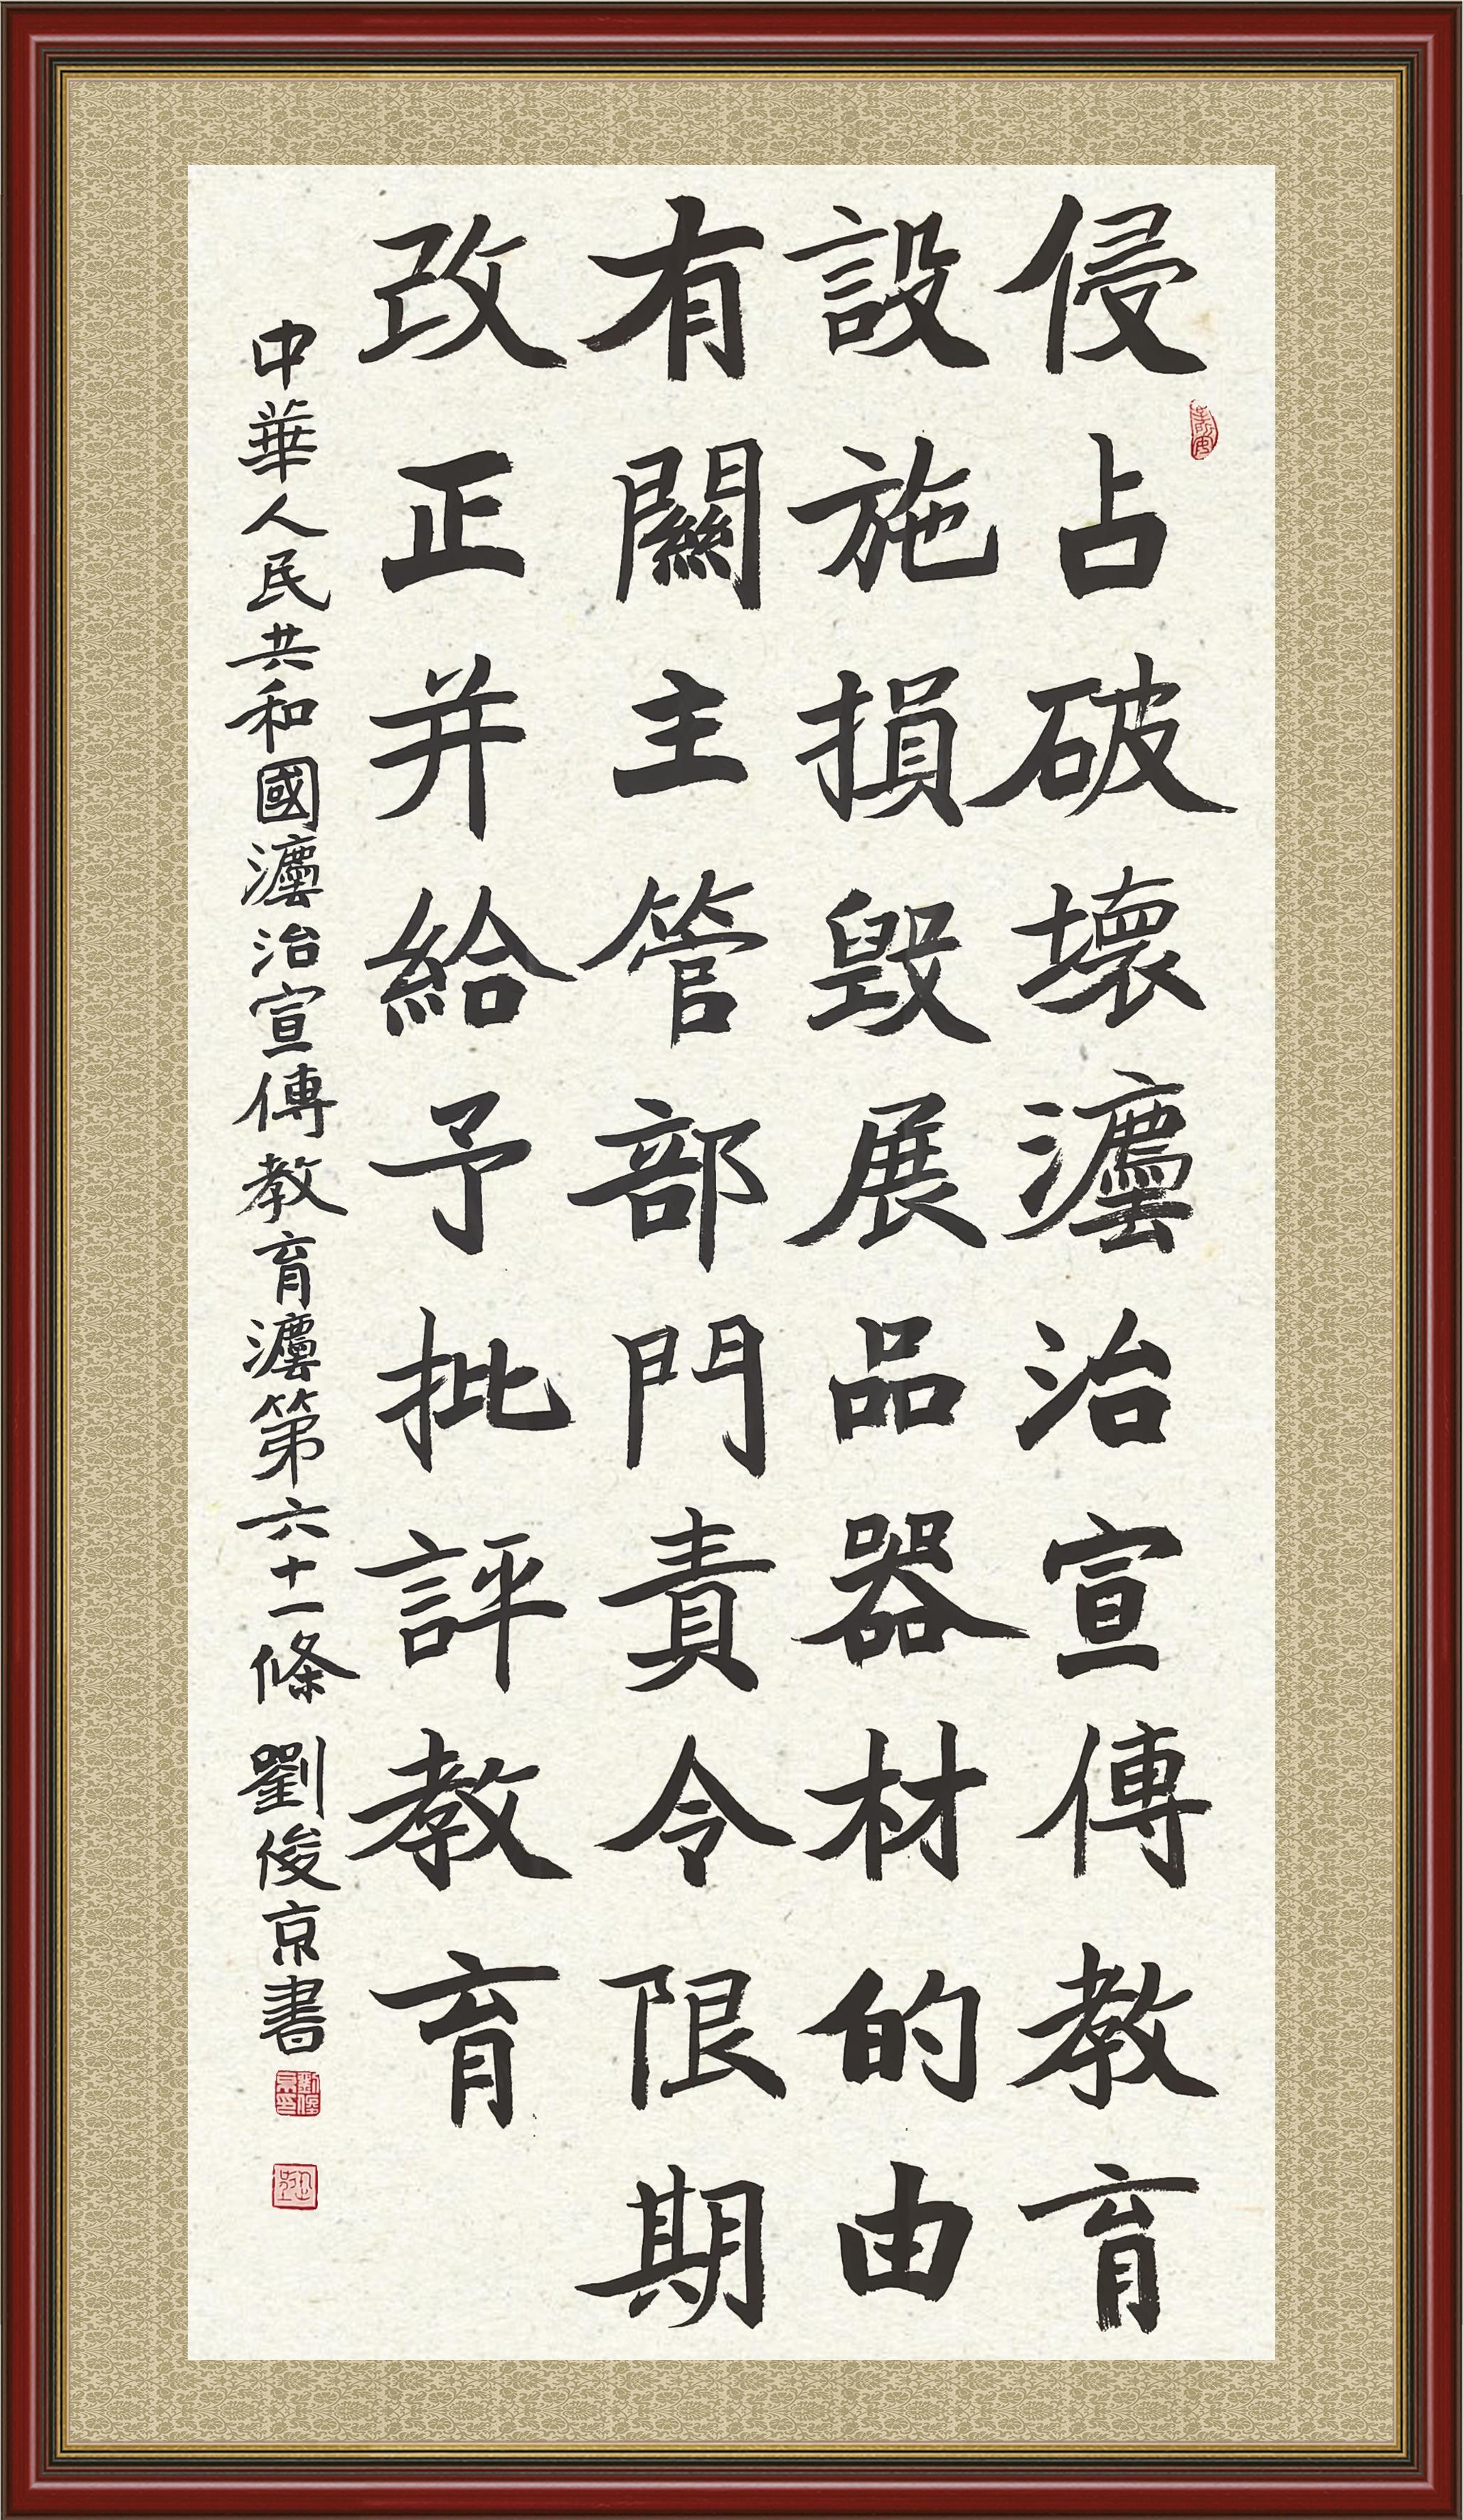 侵占破壞灋治宣傳教育
設施損毀展品器材的由
有關主管部門責令限期
改正并給予批評教育
中華人民共和國灋治宣傳教育灋第六十一條 劉俊京書
劉俊京印